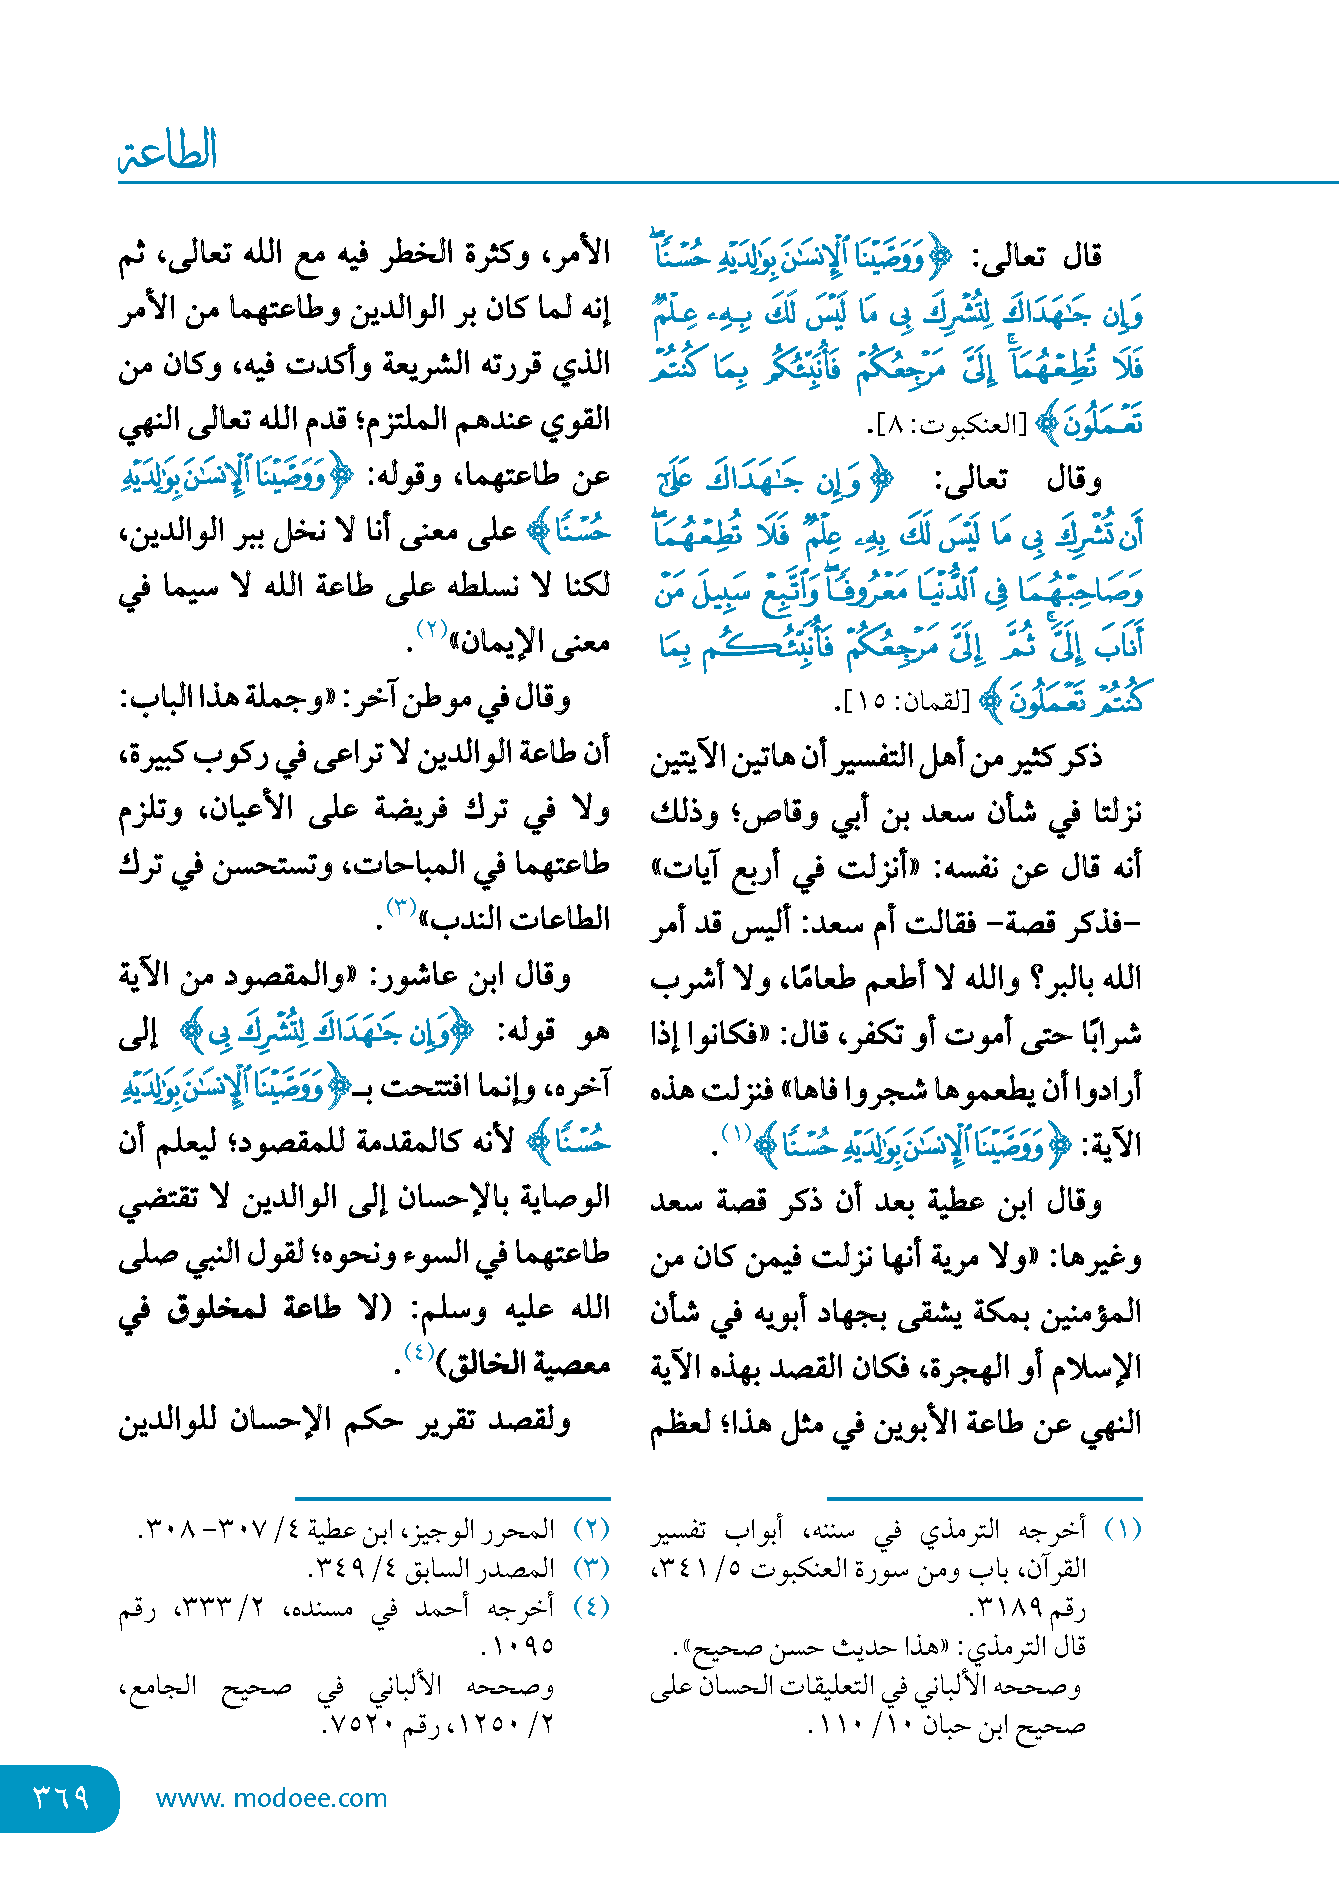 الطاعة
قال تعالى: ﴿وَوَصَّيْنَا ٱلْإِنسَٰنَ بِوَٰلِدَيْهِ حُسْنًا ۖ
وَإِن جَٰهَدَاكَ لِتُشْرِكَ بِى مَا لَيْسَ لَكَ بِهِۦ عِلْمٌ
فَلَا تُطِعْهُمَآ ۚ إِلَىَّ مَرْجِعُكُمْ فَأُنَبِّئُكُم بِمَا كُنتُمْ
تَعْمَلُونَ﴾ [العنكبوت: ٨].
وقال تعالى: ﴿وَإِن جَٰهَدَاكَ عَلَىٰٓ
أَن تُشْرِكَ بِى مَا لَيْسَ لَكَ بِهِۦ عِلْمٌ فَلَا تُطِعْهُمَا ۖ
وَصَاحِبْهُمَا فِى ٱلدُّنْيَا مَعْرُوفًا ۖ وَٱتَّبِعْ سَبِيلَ مَنْ
أَنَابَ إِلَىَّ ۚ ثُمَّ إِلَىَّ مَرْجِعُكُمْ فَأُنَبِّئُكُم بِمَا
كُنتُمْ تَعْمَلُونَ﴾ [لقمان: ١٥].
ذكر كثير من أهل التفسير أن هاتين الآيتين
نزلتا في شأن سعد بن أبي وقاص؛ وذلك
أنه قال عن نفسه: «أنزلت في أربع آيات»
-فذكر قصة- فقالت أم سعد: أليس قد أمر
الله بالبر؟ والله لا أطعم طعامًا، ولا أشرب
شرابًا حتى أموت أو تكفر، قال: «فكانوا إذا
أرادوا أن يطعموها شجروا فاها» فنزلت هذه
الآية: ﴿وَوَصَّيْنَا ٱلْإِنسَٰنَ بِوَٰلِدَيْهِ حُسْنًا﴾(١).
وقال ابن عطية بعد أن ذكر قصة سعد
وغيرها: «ولا مرية أنها نزلت فيمن كان من
المؤمنين بمكة يشقى بجهاد أبويه في شأن
الإسلام أو الهجرة، فكان القصد بهذه الآية
النهي عن طاعة الأبوين في مثل هذا؛ لعظم
الأمر، وكثرة الخطر فيه مع الله تعالى، ثم
إنه لما كان بر الوالدين وطاعتهما من الأمر
الذي قررته الشريعة وأكدت فيه، وكان من
القوي عندهم الملتزم؛ قدم الله تعالى النهي
عن طاعتهما، وقوله: ﴿وَوَصَّيْنَا ٱلْإِنسَٰنَ بِوَٰلِدَيْهِ
حُسْنًا﴾ على معنى أنا لا نخل ببر الوالدين،
لكنا لا نسلطه على طاعة الله لا سيما في
معنى الإيمان»(٢).
وقال في موطن آخر: «وجملة هذا الباب:
أن طاعة الوالدين لا تراعى في ركوب كبيرة،
ولا في ترك فريضة على الأعيان، وتلزم
طاعتهما في المباحات، وتستحسن في ترك
الطاعات الندب»(٣).
وقال ابن عاشور: «والمقصود من الآية
هو قوله: ﴿وَإِن جَٰهَدَاكَ لِتُشْرِكَ بِى﴾ إلى
آخره، وإنما افتتحت بـ﴿وَوَصَّيْنَا ٱلْإِنسَٰنَ بِوَٰلِدَيْهِ
حُسْنًا﴾ لأنه كالمقدمة للمقصود؛ ليعلم أن
الوصاية بالإحسان إلى الوالدين لا تقتضي
طاعتهما في السوء ونحوه؛ لقول النبي صلى
الله عليه وسلم: (لا طاعة لمخلوق في
معصية الخالق)(٤).
ولقصد تقرير حكم الإحسان للوالدين
(١) أخرجه الترمذي في سننه، أبواب تفسير
القرآن، باب ومن سورة العنكبوت ٥/ ٣٤١،
رقم ٣١٨٩.
قال الترمذي: «هذا حديث حسن صحيح».
وصححه الألباني في التعليقات الحسان على
صحيح ابن حبان ١٠/ ١١٠.
(٢) المحرر الوجيز، ابن عطية ٤/ ٣٠٧- ٣٠٨.
(٣) المصدر السابق ٤/ ٣٤٩.
(٤) أخرجه أحمد في مسنده، ٢/ ٣٣٣، رقم
١٠٩٥.
وصححه الألباني في صحيح الجامع،
٢/ ١٢٥٠، رقم ٧٥٢٠.
٣٦٩
www. modoee.com